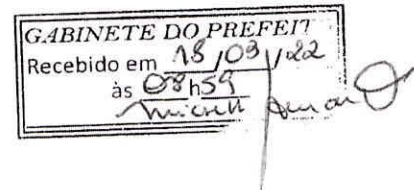 GABINETE DO PREFEIT
Recebido em 18/03/22
às 08h59